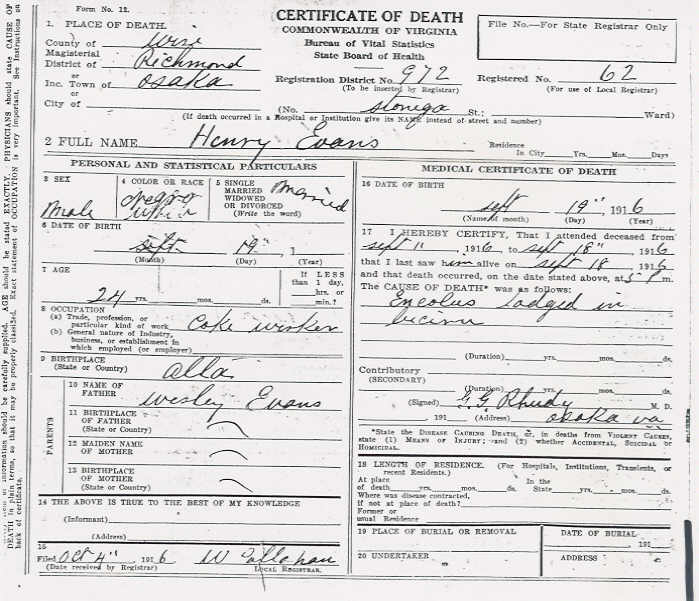 Form No. 12.
CERTIFICATE OF DEATH
COMMONWEALTH OF VIRGINIA
Bureau of Vital Statistics
State Board of Health
File No.—For State Registrar Only
1. PLACE OF DEATH.
County of Wise
Magisterial
District of Richmond
or
Inc. Town of Osaka
or
City of
Registration District No. 972
(To be inserted by Registrar)
Registered No. 62
(For use of Local Registrar)
(No. Stonega St.; Ward)
(If death occurred in a Hospital or Institution give its NAME instead of street and number)
2 FULL NAME Henry Evans
Residence
In City Yrs. Mos. Days
PERSONAL AND STATISTICAL PARTICULARS
3 SEX
Male
4 COLOR OR RACE
Negro
5 SINGLE
MARRIED
WIDOWED
OR DIVORCED
(Write the word)
Married
6 DATE OF BIRTH
Sept 19", 1
(Month) (Day) (Year)
7 AGE
24 yrs. mos. ds.
If LESS
than 1 day,
hrs. or
min.?
8 OCCUPATION
(a) Trade, profession, or
particular kind of work Coke worker
(b) General nature of Industry,
business, or establishment in
which employed (or employer)
9 BIRTHPLACE
(State or Country) alla
PARENTS
10 NAME OF
FATHER Wesley Evans
11 BIRTHPLACE
OF FATHER
(State or Country)
12 MAIDEN NAME
OF MOTHER
13 BIRTHPLACE
OF MOTHER
(State or Country)
14 THE ABOVE IS TRUE TO THE BEST OF MY KNOWLEDGE
(Informant)
(Address)
15
Filed Oct 4" 1916 W Callahan
(Date received by Registrar) LOCAL REGISTRAR.
MEDICAL CERTIFICATE OF DEATH
16 DATE OF BIRTH
Sept 19", 1916
(Name of month) (Day) (Year)
17 I HEREBY CERTIFY, That I attended deceased from
Sept 11 1916, to Sept 18" 1916
that I last saw him alive on Sept 18 1916
and that death occurred, on the date stated above, at 5 P m.
The CAUSE OF DEATH* was as follows:
lodged in
(Duration) yrs. mos. ds.
Contributory
(SECONDARY)
(Duration) yrs. mos. ds.
(Signed) G.G. Rhudy M. D.
, 191 (Address) Osaka Va
*State the DISEASE CAUSING DEATH, or, in deaths from VIOLENT CAUSES,
state (1) MEANS OF INJURY; and (2) whether ACCIDENTAL, SUICIDAL or
HOMICIDAL.
18 LENGTH OF RESIDENCE. (For Hospitals, Institutions, Transients, or
recent Residents.)
At place In the
of death yrs. mos. ds. State yrs. mos. ds.
Where was disease contracted,
if not at place of death?
Former or
usual Residence
19 PLACE OF BURIAL OR REMOVAL
DATE OF BURIAL
191
20 UNDERTAKER
ADDRESS
information should be carefully supplied. AGE should be stated EXACTLY. PHYSICIANS should state CAUSE OF
DEATH in plain terms, so that it may be properly classified. Exact statement of OCCUPATION is very important. See instructions on
back of certificate.